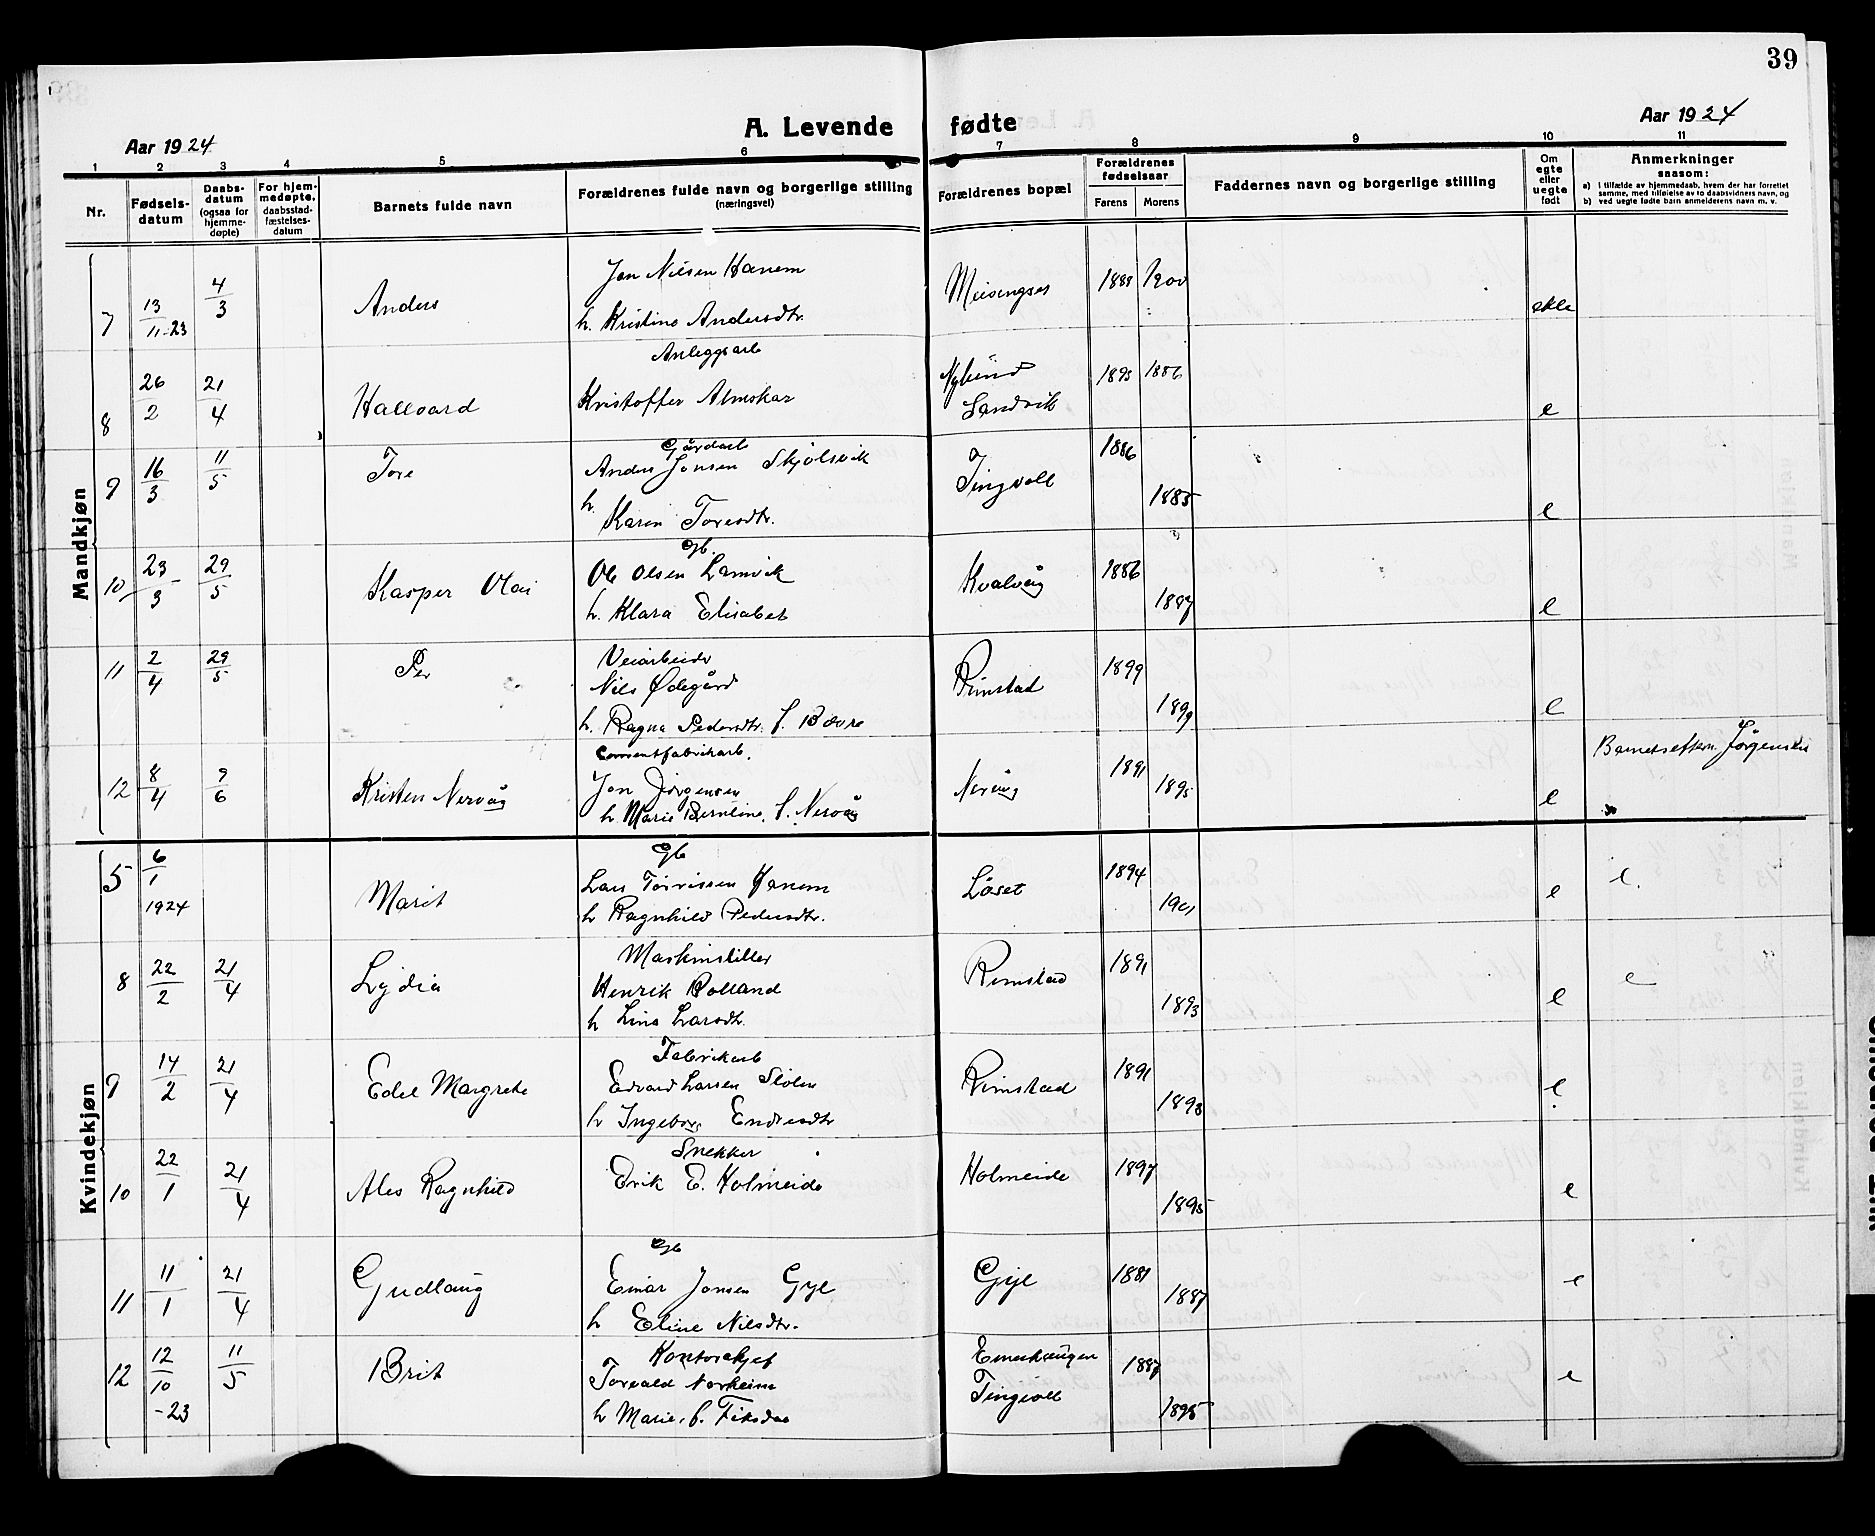 39
A. Levende fødte
Aar 1924
Aar 1924
1 2 3 4 5 6 7 8 9 10 11
Nr.
Fødsels-
datum
Daabs-
datum
(ogsaa for
hjemme-
døpte)
For hjem-
medøpte,
daabsstad-
fæstelses-
datum
Barnets fulde navn
Forældrenes fulde navn og borgerlige stilling
(næringsvei)
Forældrenes bopæl
Forældrenes
fødselsaar
Farens Morens
Faddernes navn og borgerlige stilling
Om
egte
eller
uegte
født
Anmerkninger
saasom:
a) I tilfælde av hjemmedaab, hvem der har forrettet
samme, med tilføielse av to daabsvidners navn, og
b) ved uegte fødte barn anmelderens navn m. v.
Mandkjøn
Jon Nilsen Hanem
7 13/11-23 4/3 Anders 1900 ekte
h. Kristine Andersdtr.
Anleggsarb
8 26/2 21/4 Hallvard Kristoffer Almskar Nylund 1895 1886
Sandvik e
Gårdarb
9 16/3 11/5 Tore Anders Jonsen Skjølsvik Tingvoll 1886
h. Karen Toresdtr. 1885 e
Gb.
10 23/3 29/5 Kasper Olai Ole Olsen Lamvik Kvalvåg 1886
h. Klara Elisabet 1887 e
Veiarbeider
11 2/4 29/5 Per Nils Ødegård Rimstad 1899
h. Ragna Pedersdtr. f. Bævre 1899 e
Cementfabrikarb.
12 8/4 9/6 Kristen Nervåg Jon Jörgensen Nervåg 1891 1895 e
h. Marie Berntine f. Nervåg
Barnets eftern. Jörgensen
Kvindekjøn
Gb
5 6/1 1924 Marit Lars Hanem Löset 1894
h Ragnhild Pedersdtr. 1901 e e.
Maskinstiller
8 22/2 21/4 Lydia Henrik Rolland Rimstad 1891
h Lina Larsdtr. 1893 e e
Fabrikarb
9 14/2 21/4 Edel Margrete Edvard Larsen Rimstad 1891
h Ingeborg Endresdtr 1893 e
Snekker
10 22/1 21/4 Ales Ragnhild Erik E. Holmeide Holmeide 1897
1895 e
Gb
11 11/1 21/4 Gudlaug Einar Jonsen Gyl Gyl 1881
h Eline Nilsdtr. 1887 e
Kontorchef
12 12/10 -23 11/5 Brit Torvald Norheim 1887
h Marie f. Fiksdal Tingvoll 1895 e